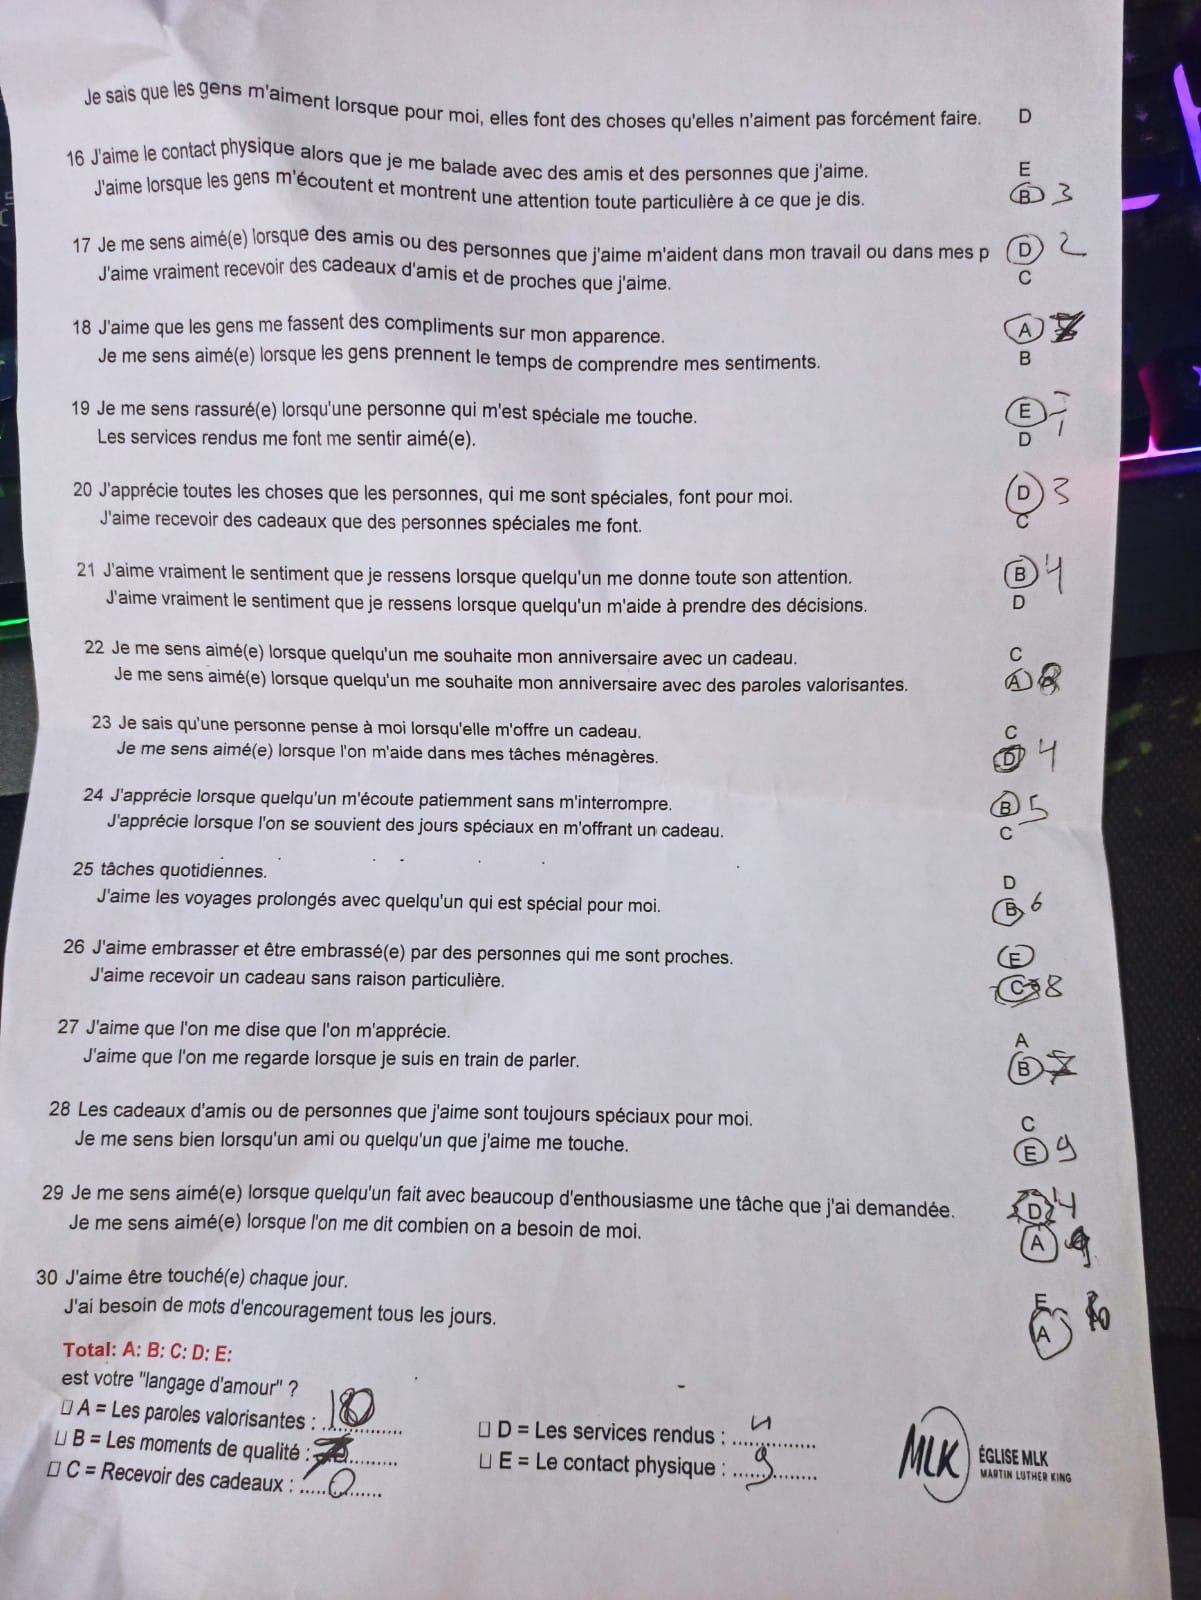 Je sais que les gens m'aiment lorsque pour moi, elles font des choses qu'elles n'aiment pas forcément faire. D
16 J'aime le contact physique alors que je me balade avec des amis et des personnes que j'aime. E
J'aime lorsque les gens m'écoutent et montrent une attention toute particulière à ce que je dis. B 3
17 Je me sens aimé(e) lorsque des amis ou des personnes que j'aime m'aident dans mon travail ou dans mes p D 2
J'aime vraiment recevoir des cadeaux d'amis et de proches que j'aime. C
18 J'aime que les gens me fassent des compliments sur mon apparence. A
Je me sens aimé(e) lorsque les gens prennent le temps de comprendre mes sentiments. B
19 Je me sens rassuré(e) lorsqu'une personne qui m'est spéciale me touche. E
Les services rendus me font me sentir aimé(e). D
20 J'apprécie toutes les choses que les personnes, qui me sont spéciales, font pour moi. D 3
J'aime recevoir des cadeaux que des personnes spéciales me font. C
21 J'aime vraiment le sentiment que je ressens lorsque quelqu'un me donne toute son attention. B 4
J'aime vraiment le sentiment que je ressens lorsque quelqu'un m'aide à prendre des décisions. D
22 Je me sens aimé(e) lorsque quelqu'un me souhaite mon anniversaire avec un cadeau. C
Je me sens aimé(e) lorsque quelqu'un me souhaite mon anniversaire avec des paroles valorisantes. A 8
23 Je sais qu'une personne pense à moi lorsqu'elle m'offre un cadeau. C
Je me sens aimé(e) lorsque l'on m'aide dans mes tâches ménagères. D 4
24 J'apprécie lorsque quelqu'un m'écoute patiemment sans m'interrompre. B 5
J'apprécie lorsque l'on se souvient des jours spéciaux en m'offrant un cadeau. C
25 tâches quotidiennes. D
J'aime les voyages prolongés avec quelqu'un qui est spécial pour moi. B 6
26 J'aime embrasser et être embrassé(e) par des personnes qui me sont proches. E
J'aime recevoir un cadeau sans raison particulière. C 8
27 J'aime que l'on me dise que l'on m'apprécie. A
J'aime que l'on me regarde lorsque je suis en train de parler. B 7
28 Les cadeaux d'amis ou de personnes que j'aime sont toujours spéciaux pour moi. C
Je me sens bien lorsqu'un ami ou quelqu'un que j'aime me touche. E 9
29 Je me sens aimé(e) lorsque quelqu'un fait avec beaucoup d'enthousiasme une tâche que j'ai demandée. D 4
Je me sens aimé(e) lorsque l'on me dit combien on a besoin de moi. A 9
30 J'aime être touché(e) chaque jour. E
J'ai besoin de mots d'encouragement tous les jours. A 10
Total: A: B: C: D: E:
est votre "langage d'amour" ?
A = Les paroles valorisantes : 10
B = Les moments de qualité : 7
C = Recevoir des cadeaux : 0
D = Les services rendus : 4
E = Le contact physique : 9
MLK ÉGLISE MLK
MARTIN LUTHER KING